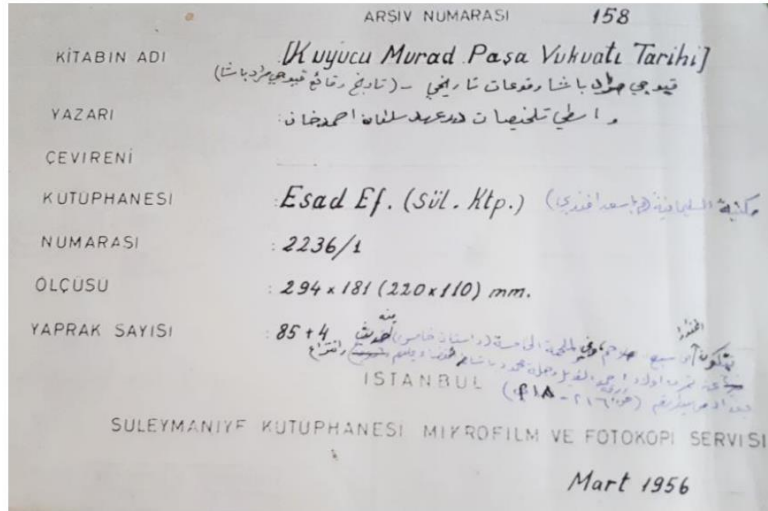 ARŞİV NUMARASI 158
KİTABIN ADI : [Kuyucu Murad Paşa Vukuatı Tarihi]
قيوجي مراد باشا وقوعات تاريخي - (تاريخ وقائع قيوجي مراد باشا)
YAZARI : واسطي تلخيصات در عهد سلطان احمد خان
ÇEVİRENİ
KÜTÜPHANESİ : Esad Ef. (Sül. Ktp.) مكتبة السليمانية اسعد افندي
NUMARASI : 2236/1
ÖLÇÜSÜ : 294 x 181 (220 x 110) mm.
YAPRAK SAYISI : 85 + 4
İSTANBUL
SÜLEYMANİYE KÜTÜPHANESİ MİKROFİLM VE FOTOKOPİ SERVİSİ
Mart 1956